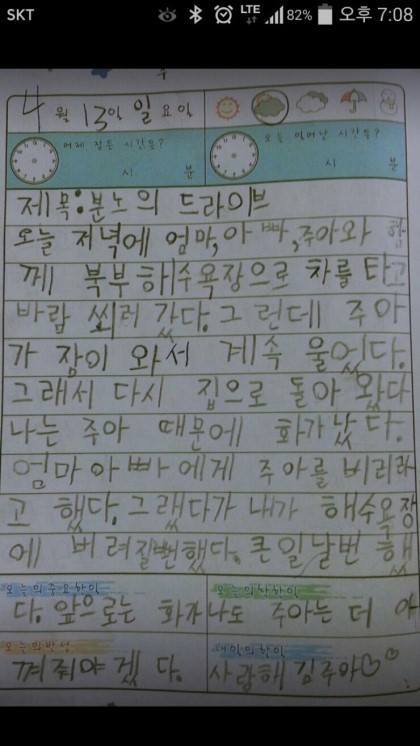 SKT LTE 82% 오후 7:08
4월 13일 일요일
어제 잠든 시간은? 오늘 일어난 시간은?
시 분 시 분
제목:분노의 드라이브
오늘 저녁에 엄마,아빠,주아와 함
께 북부해수욕장으로 차를 타고
바람 쐬러 갔다.그런데 주아
가 잠이 와서 계속 울었다.
그래서 다시 집으로 돌아 왔다
나는 주아 때문에 화가 났다.
엄마아빠에게 주아를 버리라
고 했다.그랬다가 내가 해수욕장
에 버려질뻔했다.큰일날번 했
오늘의 중요한일 오늘의 착한일
다.앞으로는 화가나도 주아는 더 아
오늘의 반성 내일의 할일
껴줘야겠다. 사랑해 김주아♡♡